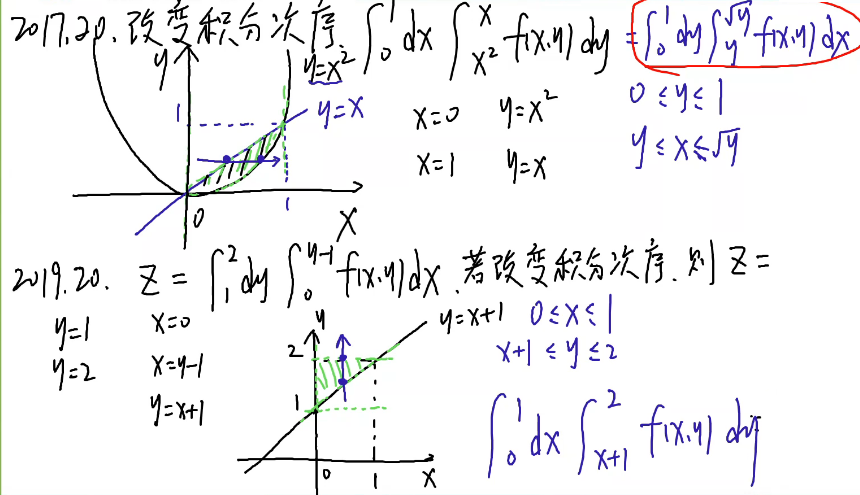 2017.20. 改变积分次序. ∫₀¹ dx ∫_{x²}^{x} f(x,y) dy = ∫₀¹ dy ∫_{y}^{√y} f(x,y) dx
y
y=x²
1
y=x
0
1
x
x=0 y=x²
x=1 y=x
0 ≤ y ≤ 1
y ≤ x ≤ √y
2019.20. Z = ∫₁² dy ∫₀^{y-1} f(x,y) dx, 若改变积分次序, 则 Z =
y=1 x=0
y=2 x=y-1
y=x+1
y
y=x+1
2
1
0
1
x
0 ≤ x ≤ 1
x+1 ≤ y ≤ 2
∫₀¹ dx ∫_{x+1}^{2} f(x,y) dy